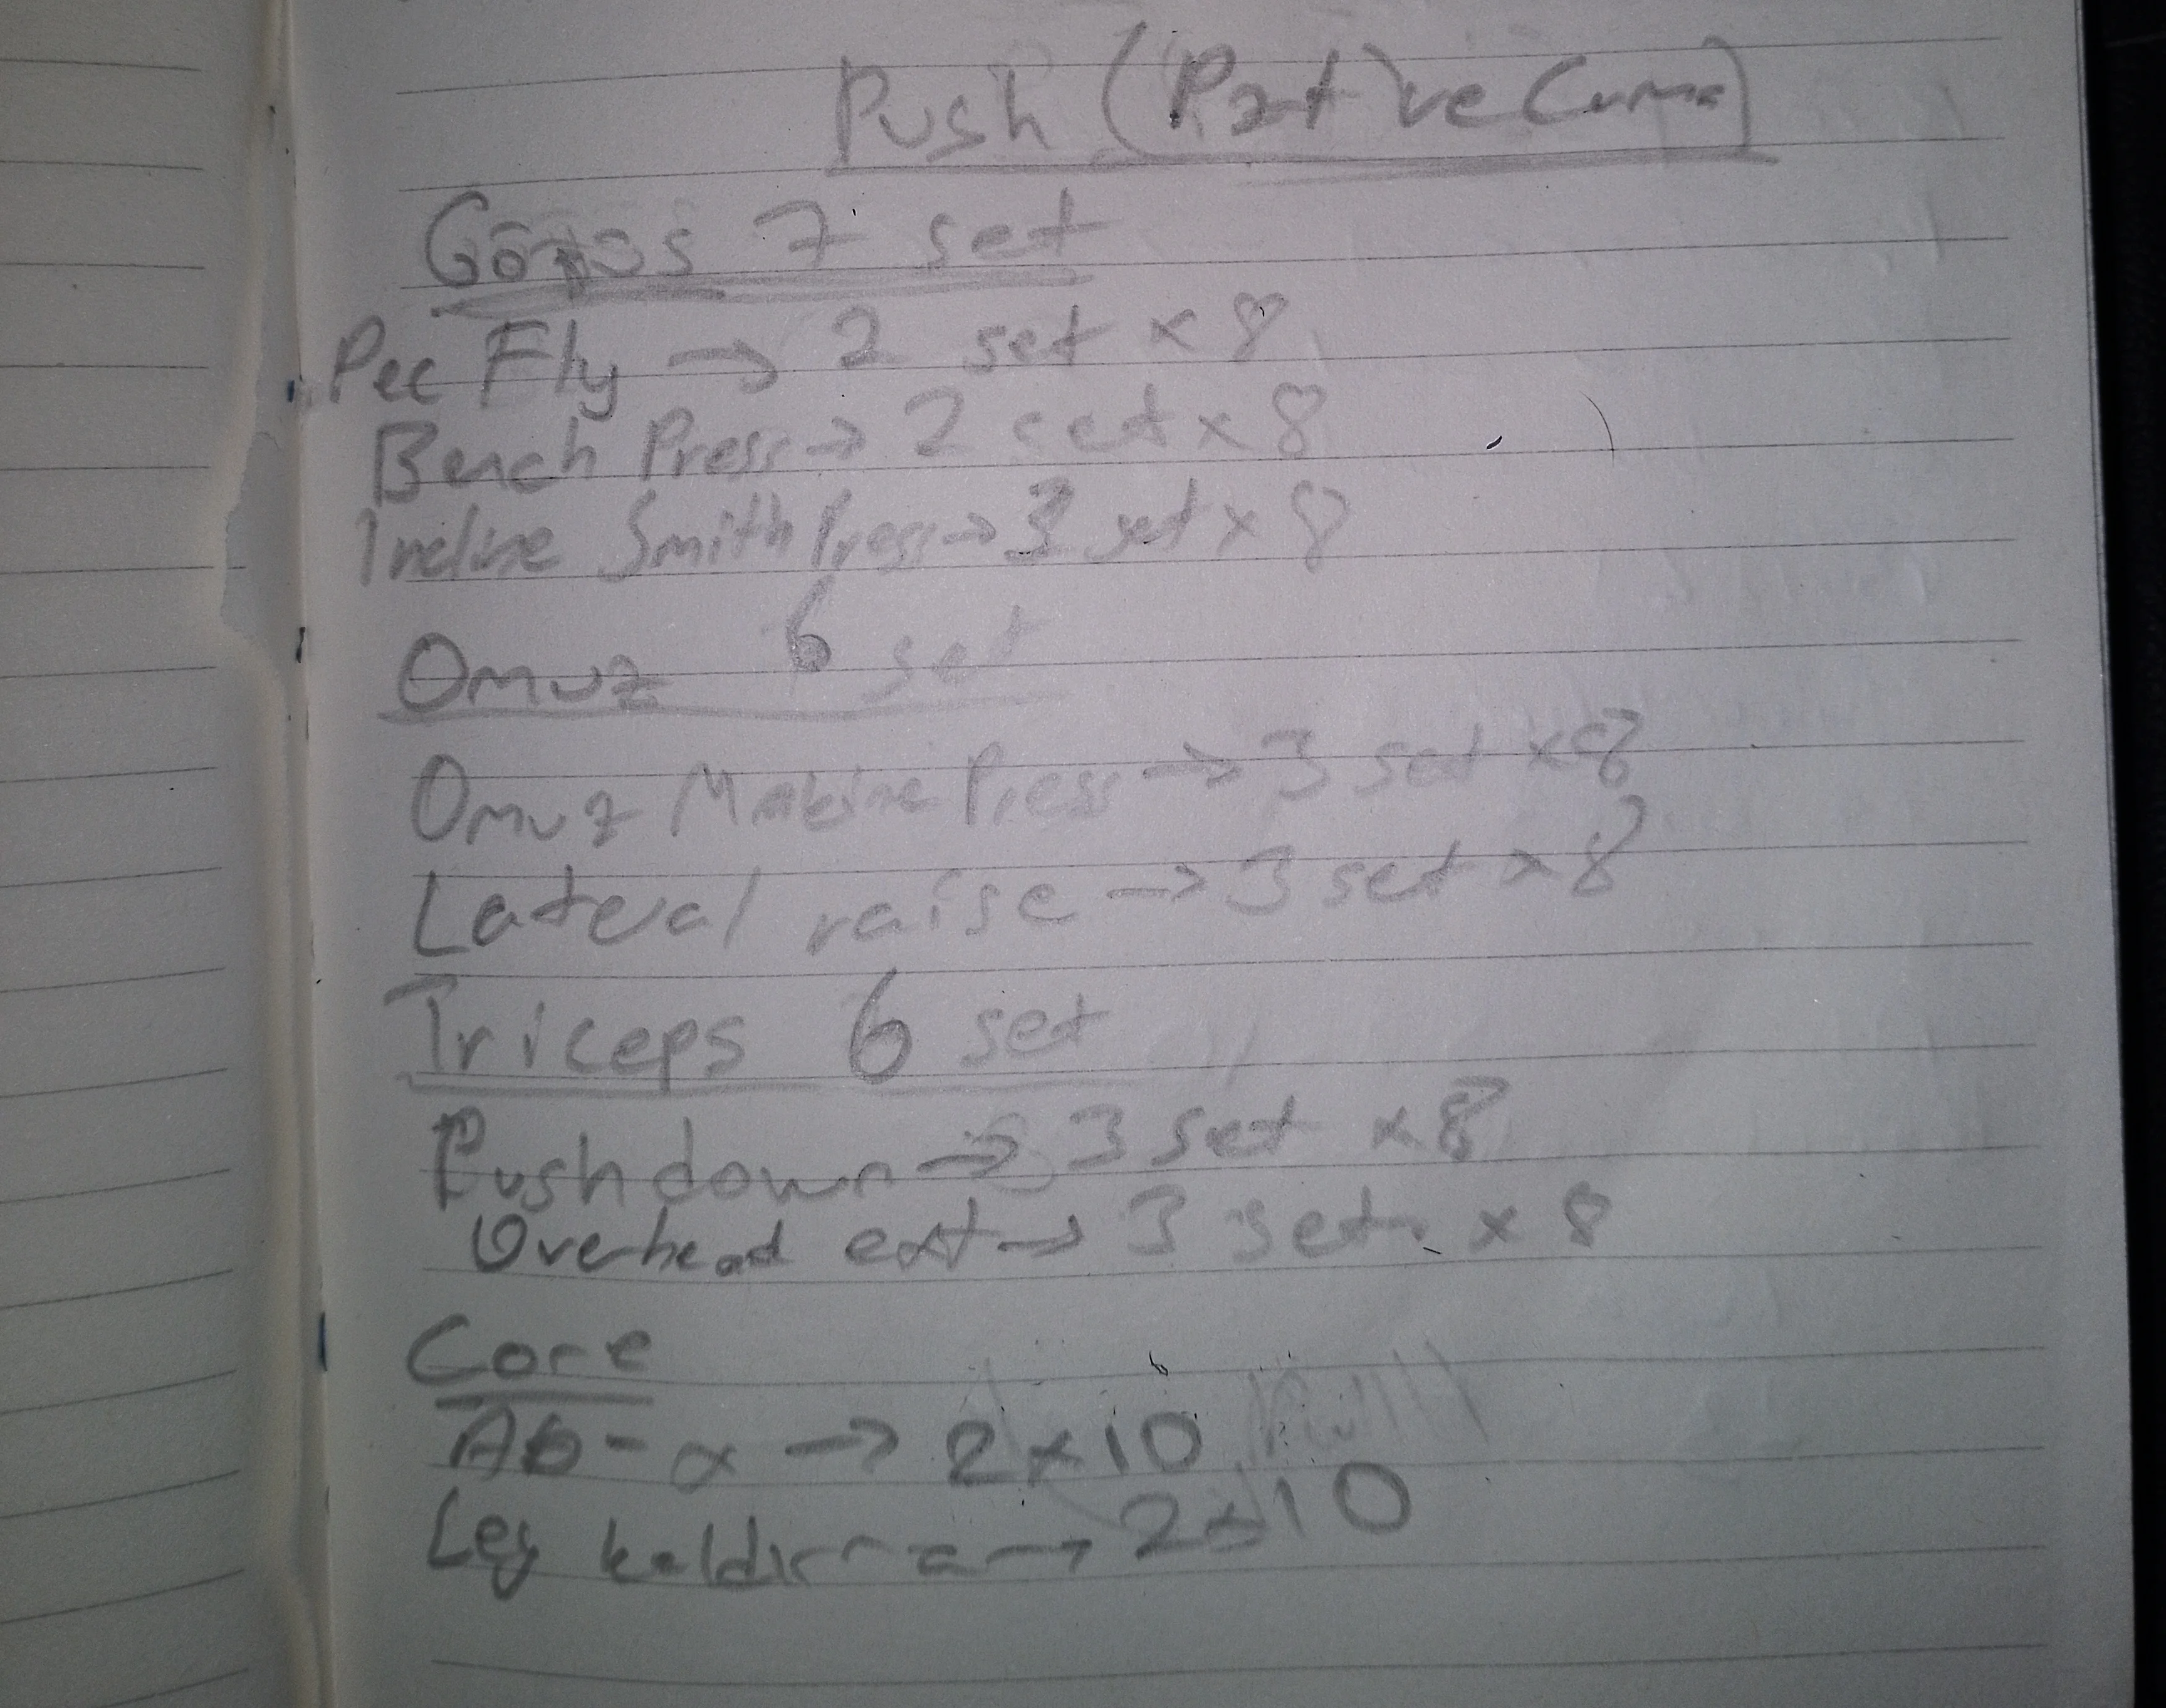 Push (Pzt ve Cuma)
Göğüs 7 set
Pec Fly → 2 set x 8
Bench Press → 2 set x 8
Incline Smith Press → 3 set x 8
Omuz 6 set
Omuz Makine Press → 3 set x 8
Lateral raise → 3 set x 8
Triceps 6 set
Pushdown → 3 set x 8
Overhead ext → 3 set x 8
Core
Ab - x → 2x10
Leg kaldırma → 2x10